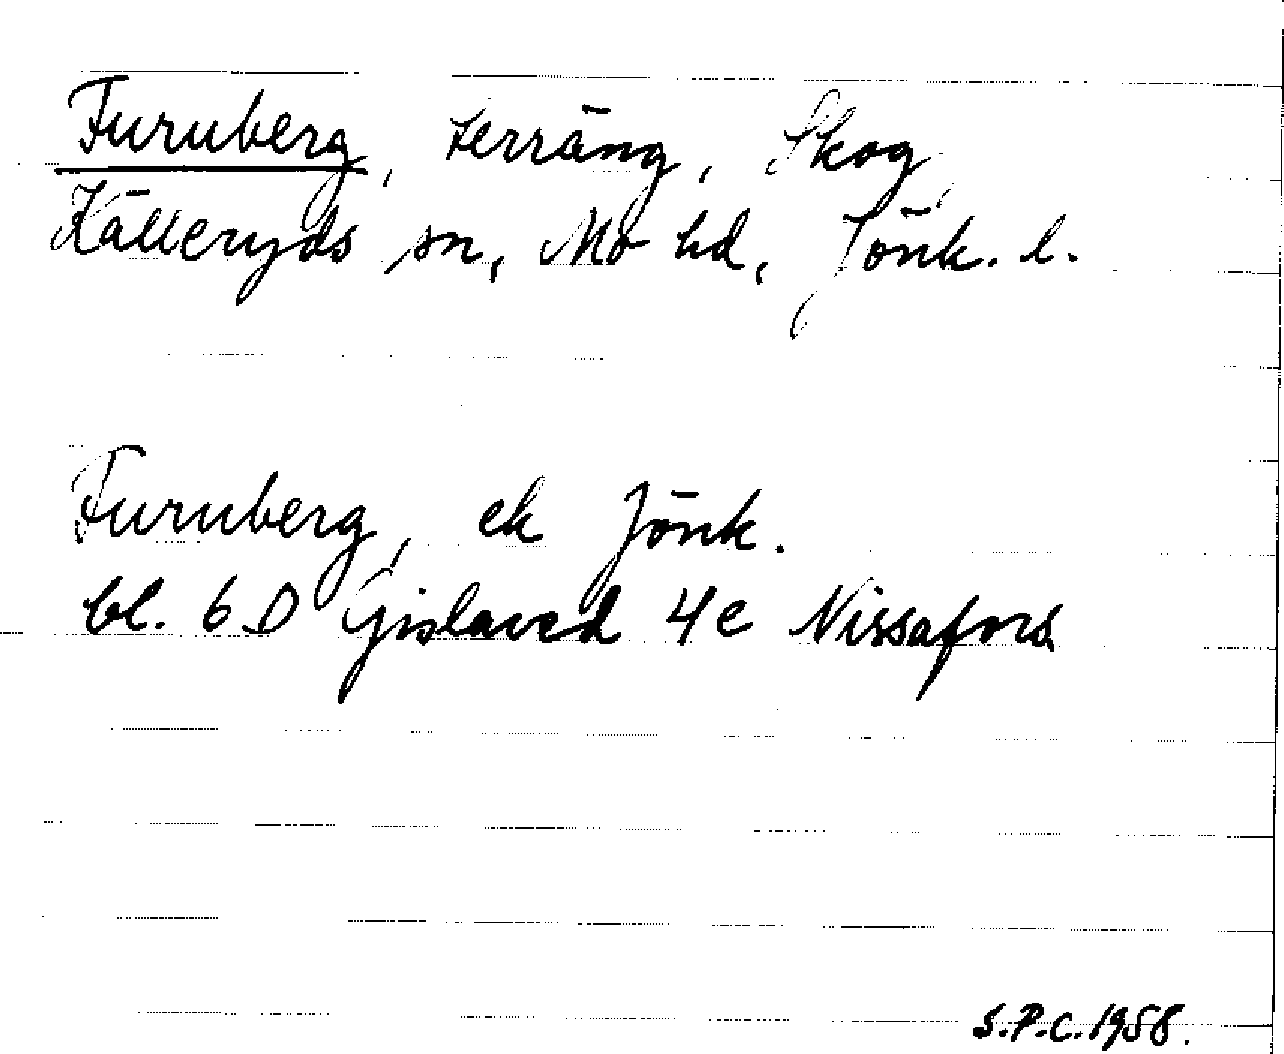 Furuberg, terräng, skog,
Källeryds sn, Mo hd, Jönk. l.
Furuberg, ek Jönk.
bl. 6 D Gislaved 4e Nissafors
S.P.C. 1958.